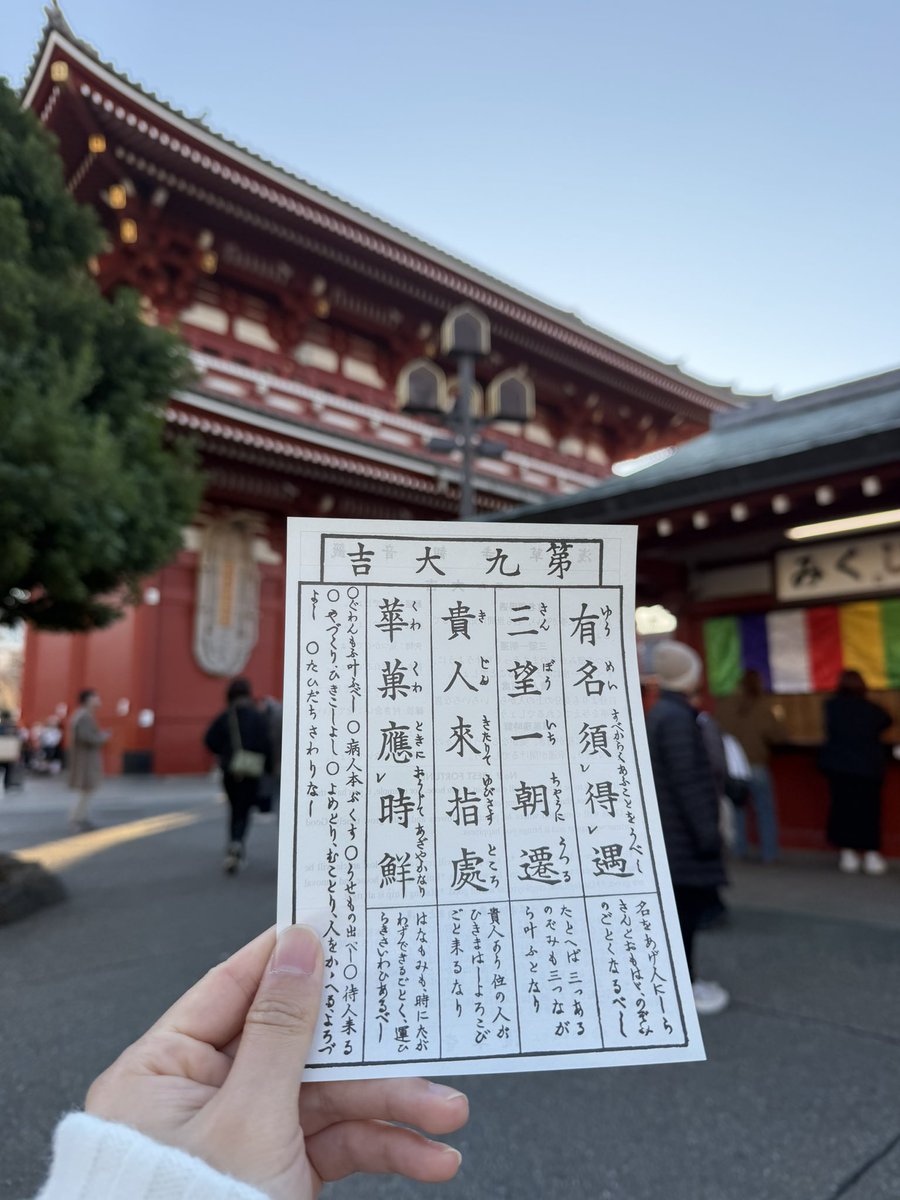 第九大吉
有名須レ得レ遇
ゆうめいすべからくあふことをうべし
名をあげ人にしら
きんとおもはゞのぞみ
のごとくなるべし
三望一朝遷
さんぼういちちやうにうつる
たとへば三つある
のぞみも三つなが
ら叶ふとなり
貴人來指處
きじんきたりてゆびさすところ
貴人より位の人が
ひきまはしよろこび
ごと来るなり
華菓應レ時鮮
くわくわときにおうじてあざやかなり
はなもみも、時にたが
わずできるごとく、運ひ
らきさいわひあるべし
〇ぐわんもふ叶ふべし 〇病人本ぶくす 〇うせもの出べし 〇待人来る
〇やづくり、ひきこしよし 〇よめとり、むことり、人をかゝへるよろづ
よし 〇たびだちさわりなし
みくじ